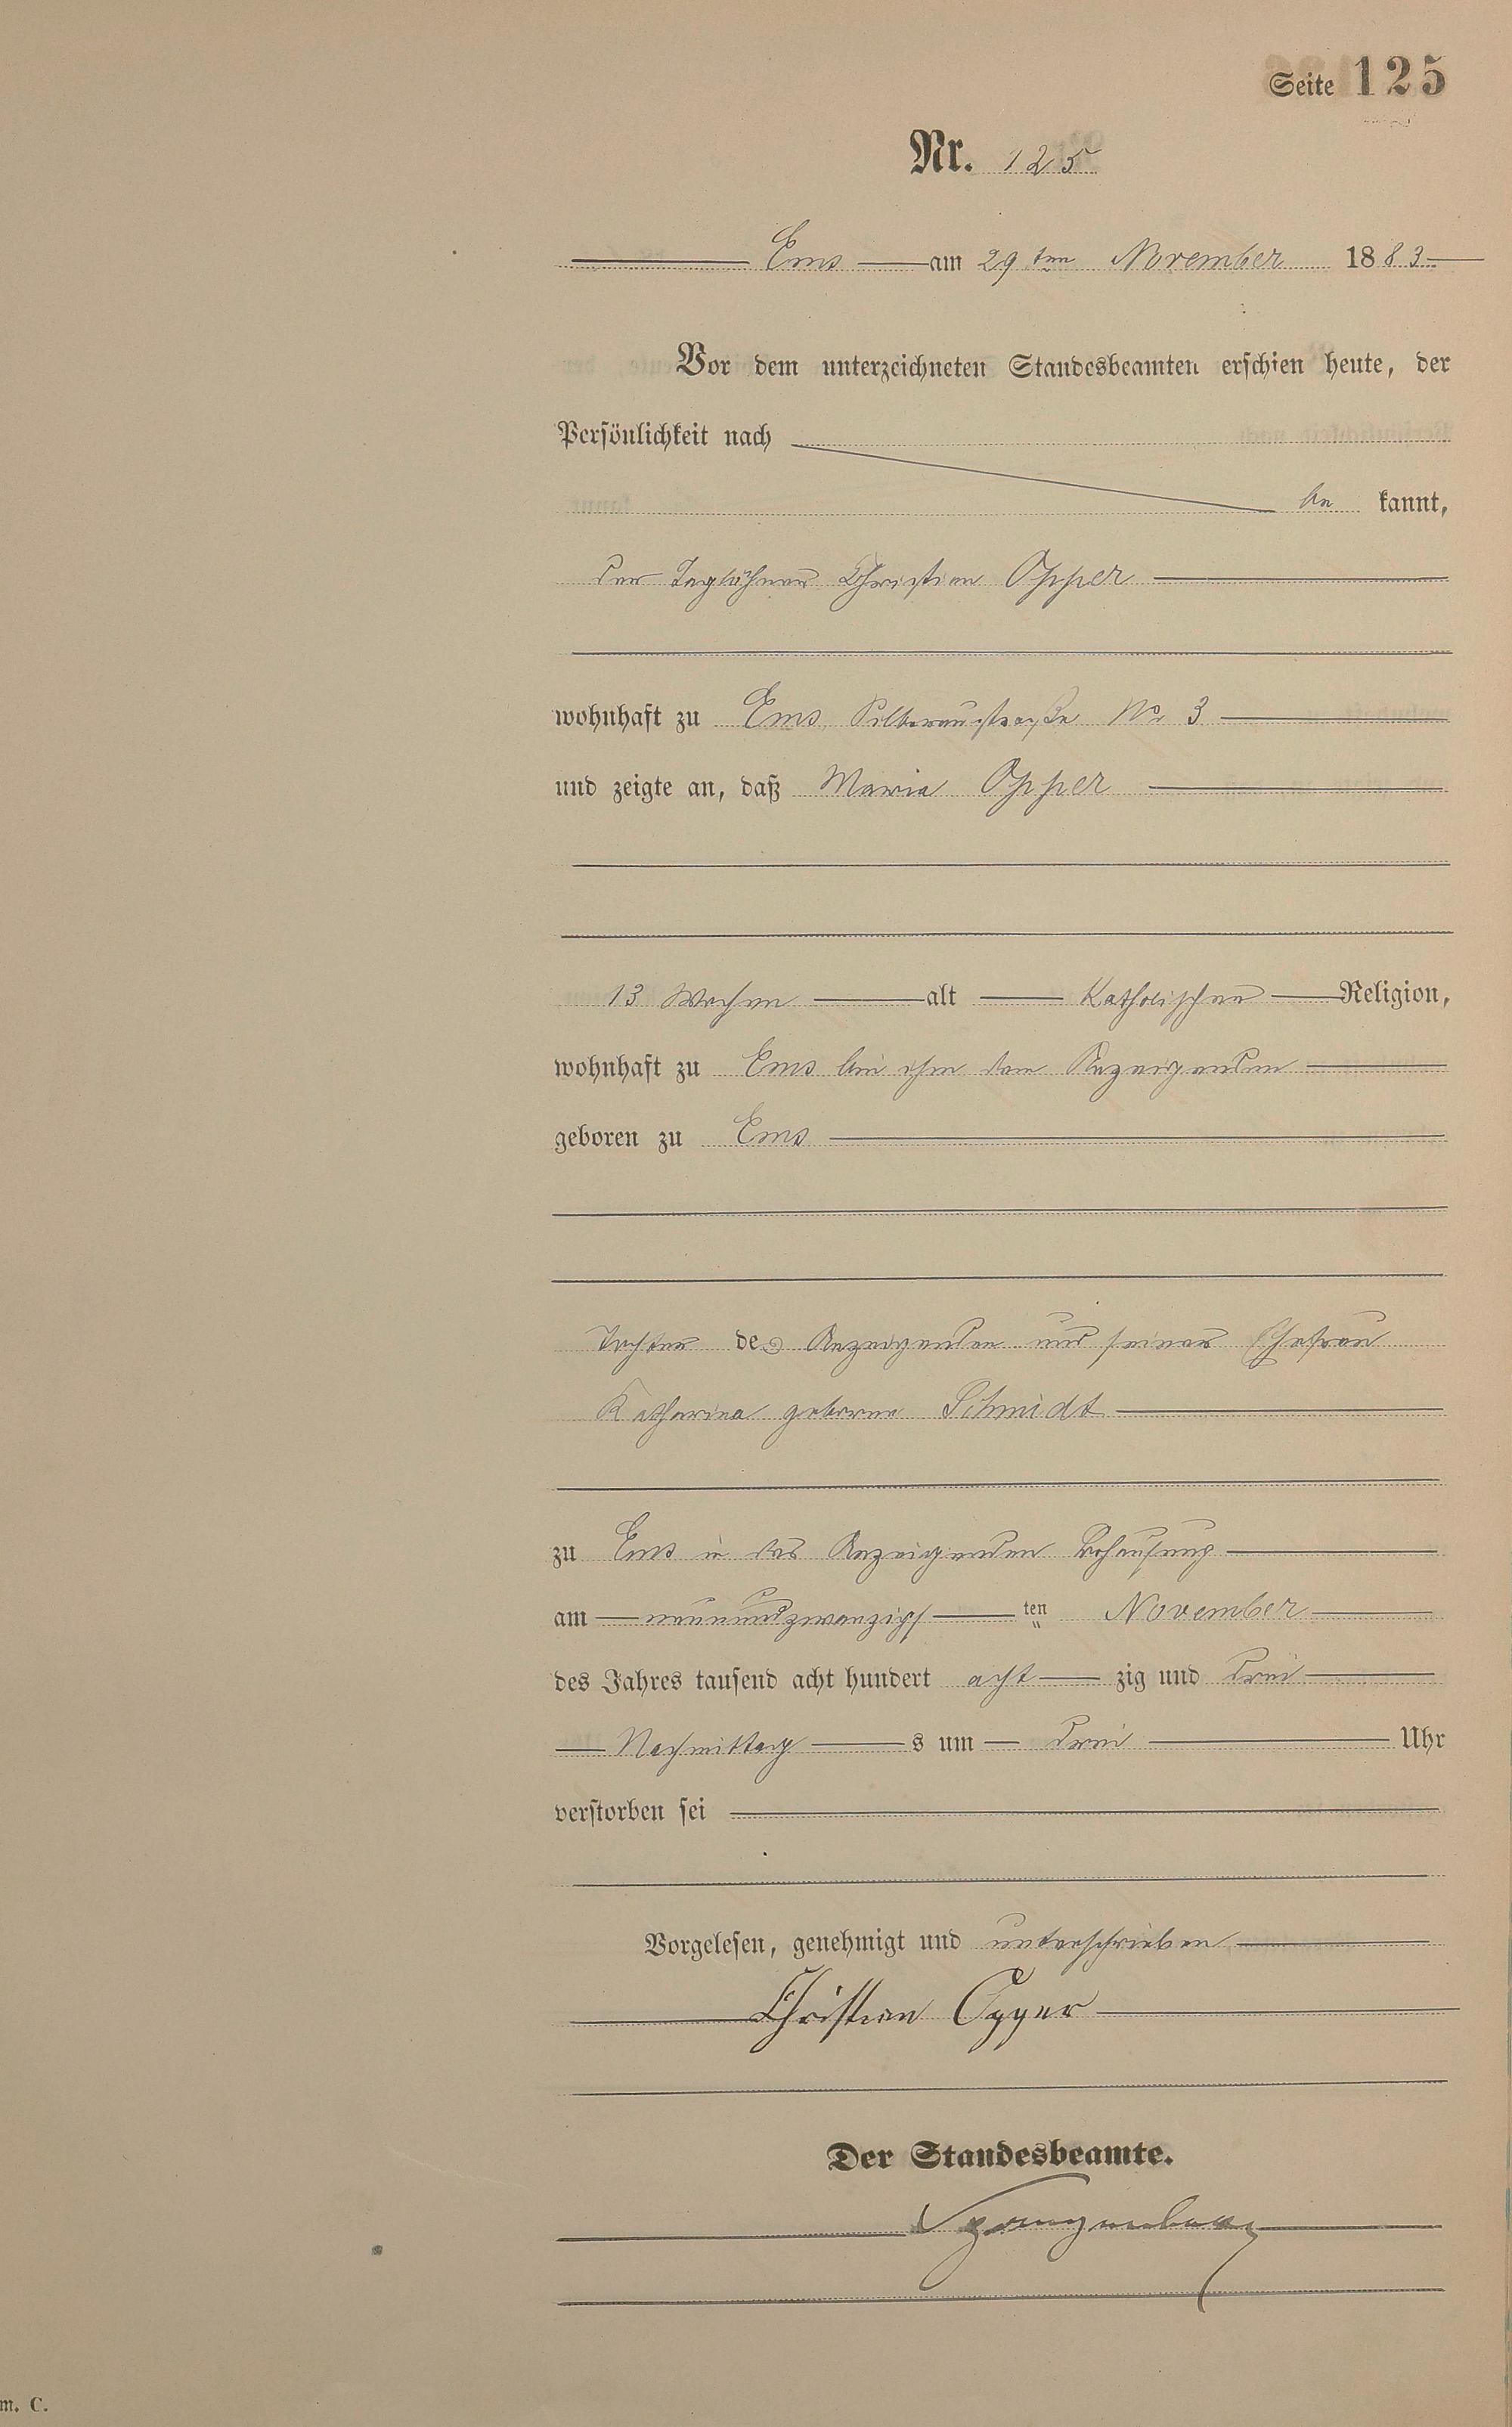 Seite 125
Nr. 125
Ems am 29ten November 1883
Vor dem unterzeichneten Standesbeamten erschien heute, der
Persönlichkeit nach
be kannt,
der Taglöhner Christian Opper
wohnhaft zu Ems, Silberaustraße No 3
und zeigte an, daß Maria Opper
13 Wochen alt Katholischer Religion,
wohnhaft zu Ems bei ihm dem Anzeigenden
geboren zu Ems
Tochter des Anzeigenden und seiner Ehefrau
Katharina geborne Schmidt
zu Ems in des Anzeigenden Behausung
am neunundzwanzigs ten November
des Jahres tausend acht hundert acht zig und drei
Nachmittag s um drei Uhr
verstorben sei
Vorgelesen, genehmigt und unterschrieben
Christian Opper
Der Standesbeamte.
m. C.